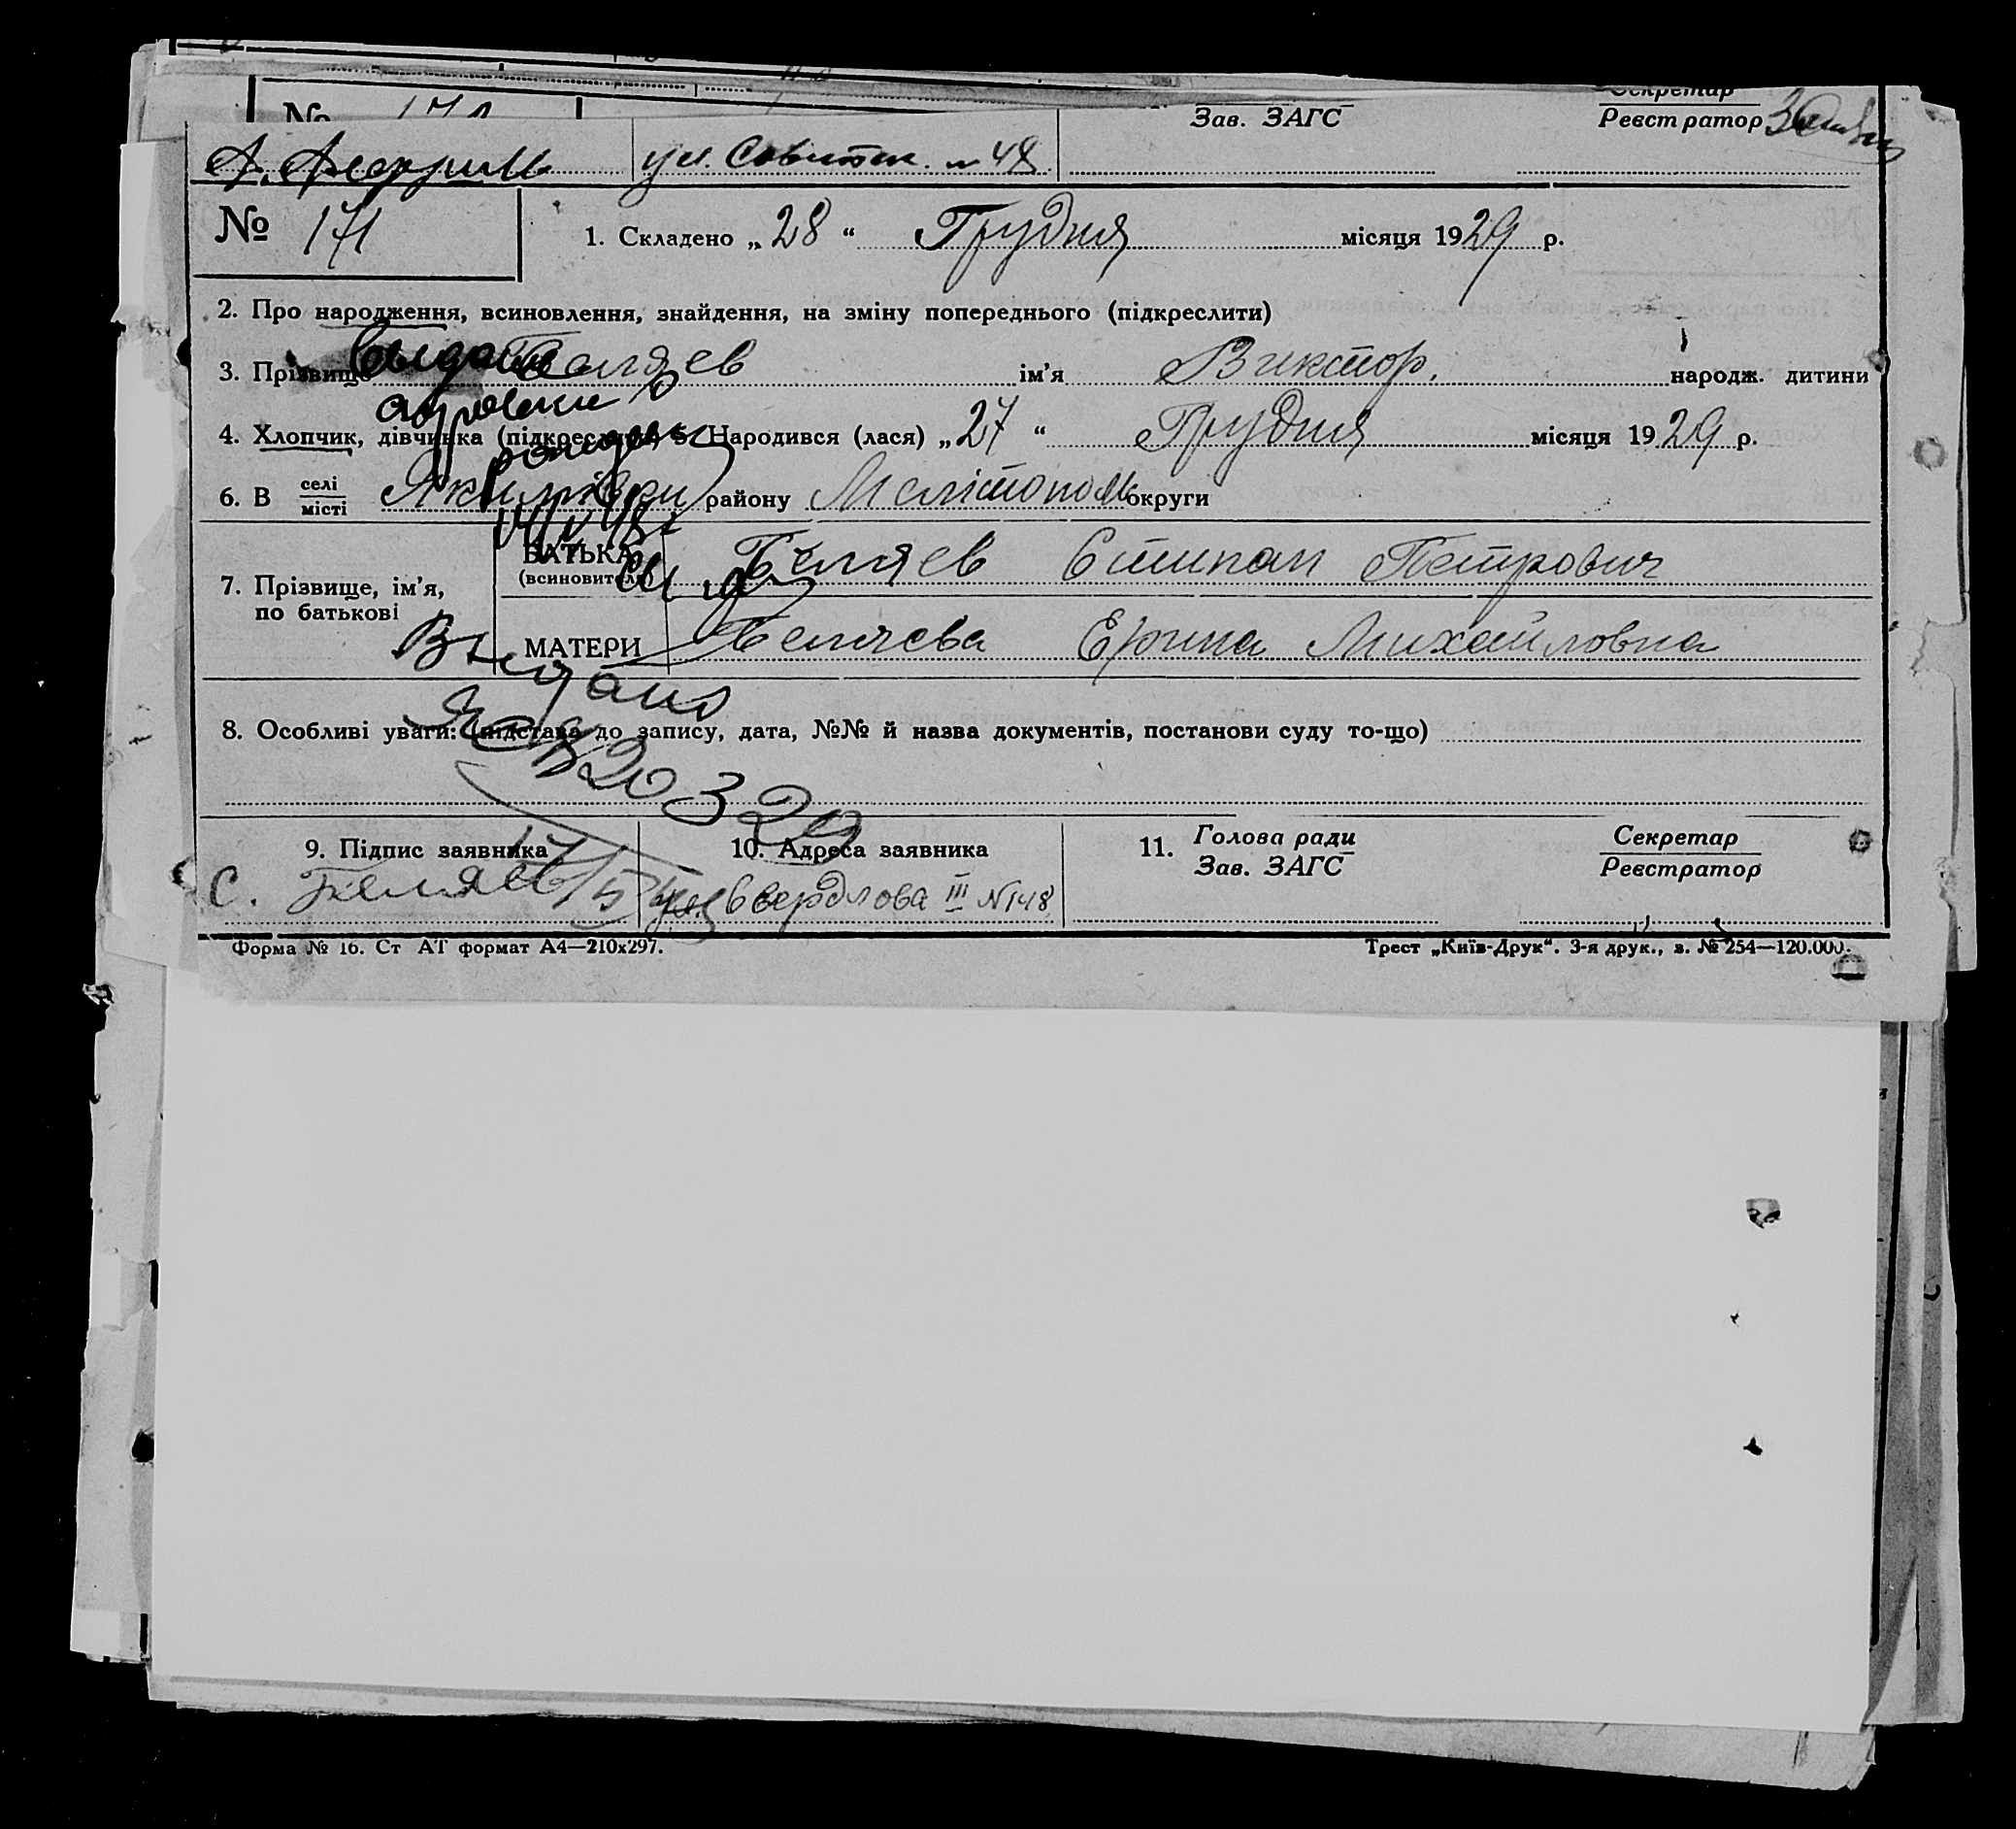 № 171
Секретар
Зав. ЗАГС Реєстратор
ул. Советск. № 48
№ 171 1. Складено „28“ Грудня місяця 1929 р.
2. Про народження, всиновлення, знайдення, на зміну попереднього (підкреслити)
3. Прізвище Беляев ім’я Виктор. народж. дитини
4. Хлопчик, дівчинка (підкреслити) 5. Народився (лася) „27“ Грудня місяця 1929 р.
6. В селі/місті Якимівки району Мелітопол округи
7. Прізвище, ім’я, по батькові
БАТЬКА (всиновителя) Беляев Стипан Петрович
МАТЕРИ Беляева Михайловна
8. Особливі уваги: (підстава до запису, дата, №№ й назва документів, постанови суду то-що)
Выдано
справки о
Выдано
20329
9. Підпис заявника 10. Адреса заявника 11. Голова ради Секретар
Зав. ЗАГС Реєстратор
С. Беляев Свердлова III № 148
Форма № 16. Ст АТ формат А4—210х297. Трест „Київ-Друк“. 3-я друк., з. № 254—120.000.